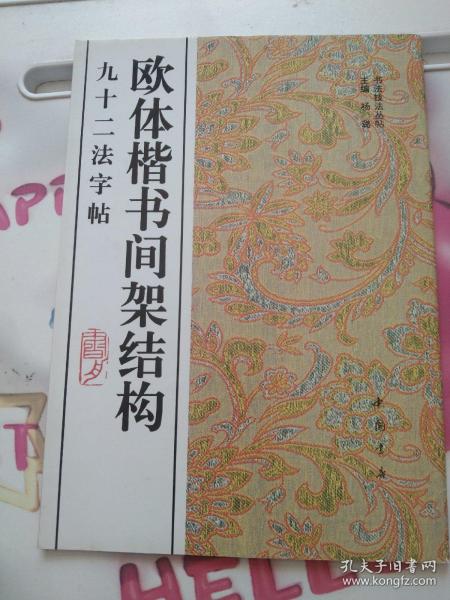 欧体楷书间架结构
九十二法字帖
书法技法丛帖
主编 杨璐
中国书店
HELLO
孔夫子旧书网
www.kongfz.com